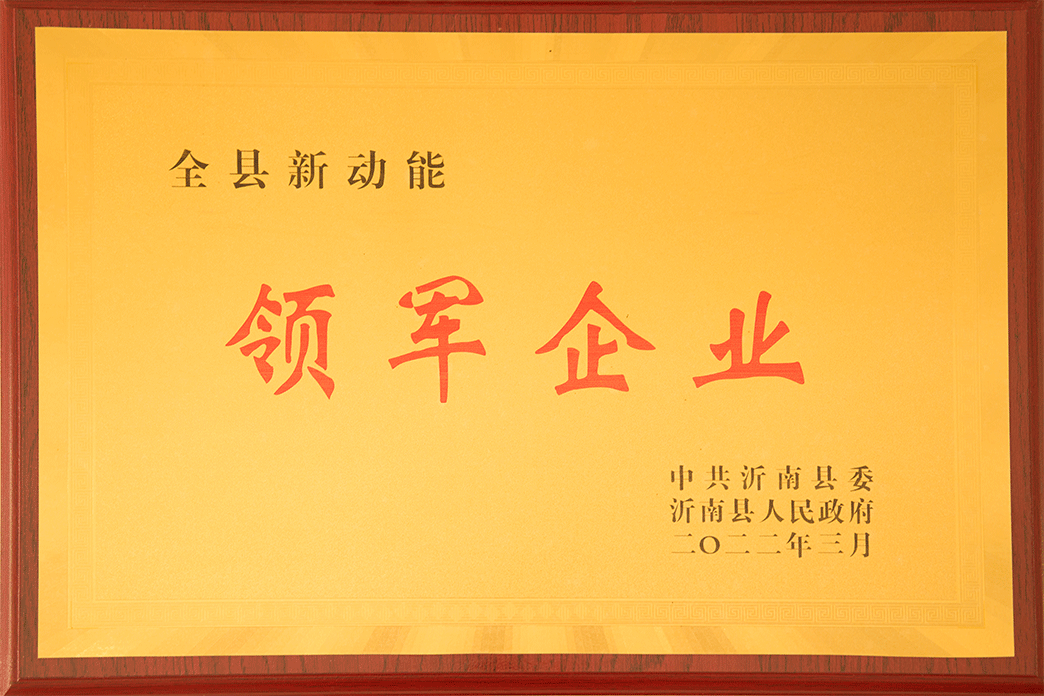 全县新动能
领军企业
中共沂南县委
沂南县人民政府
二〇二二年三月